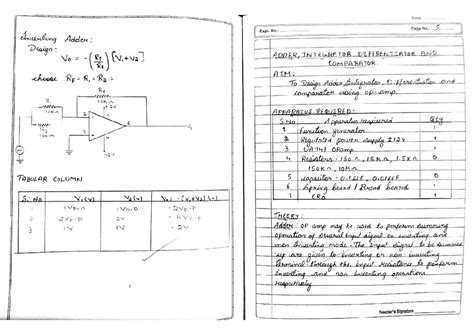 Inverting Adder:
Design:
Vo = -(Rf/R1) [V1+V2]
choose Rf = R1 = R2 =
Rf
10kΩ
R1
10kΩ
R2
10kΩ
2
3
7
4
6
Vo
TABULAR COLUMN
Sl. No V1(v) V2(v) Vo = -(V1+V2)(v)
1 1Vp-p 1Vp-p -2Vp-p
2 2Vp-p 2Vp-p -4Vp-p
3 1V 1V -2V
Date
Expt. No.
Page No. 5
ADDER, INTEGRATOR, DIFFERENTIATOR AND
COMPARATOR
AIM:
To Design Adder, Integrator, Differentiator and
comparator using op-amp.
APPARATUS REQUIRED:
S.No. Apparatus required Qty
1 Function generator 1
2 Regulated power supply ±12V 1
3 UA741 OPamp 1
4 Resistors - 15kΩ, 1.5kΩ 1
150kΩ, 10kΩ
5 Capacitor - 0.1µF, 0.01µF
6 Spring board / Bread board 1
7 CRO 1
THEORY:
Adder: op-amp may be used to perform summing
operation of several input signal in inverting and
non Inverting mode. The input signal to be summed
up are given to inverting or non inverting
terminal through the input resistance to perform
inverting and non inverting operations
respectively
Teacher's Signature